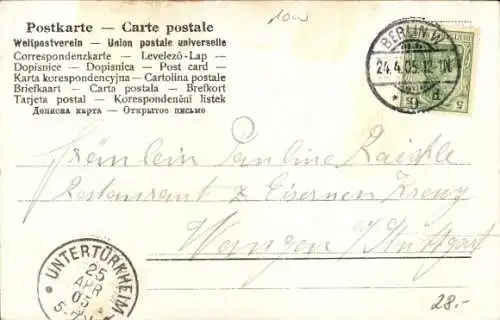 10w
Postkarte — Carte postale
Weltpostverein — Union postale universelle
Correspondenzkarte — Levelező-Lap —
Dopisnice — Dopisnica — Post card —
Karta korespondencyjna — Cartolina postale
Briefkaart — Carta postala — Brefkort
Tarjeta postal — Korespondenční listek
Дописна карта — Открытое письмо
BERLIN W.
24.4.05.12-1N.
* 9 d
5 5
Fräulein Pauline
Restaurant z Eisernen Kreuz
Wangen / Stuttgart
UNTERTÜRKHEIM
25
APR
05
28.-